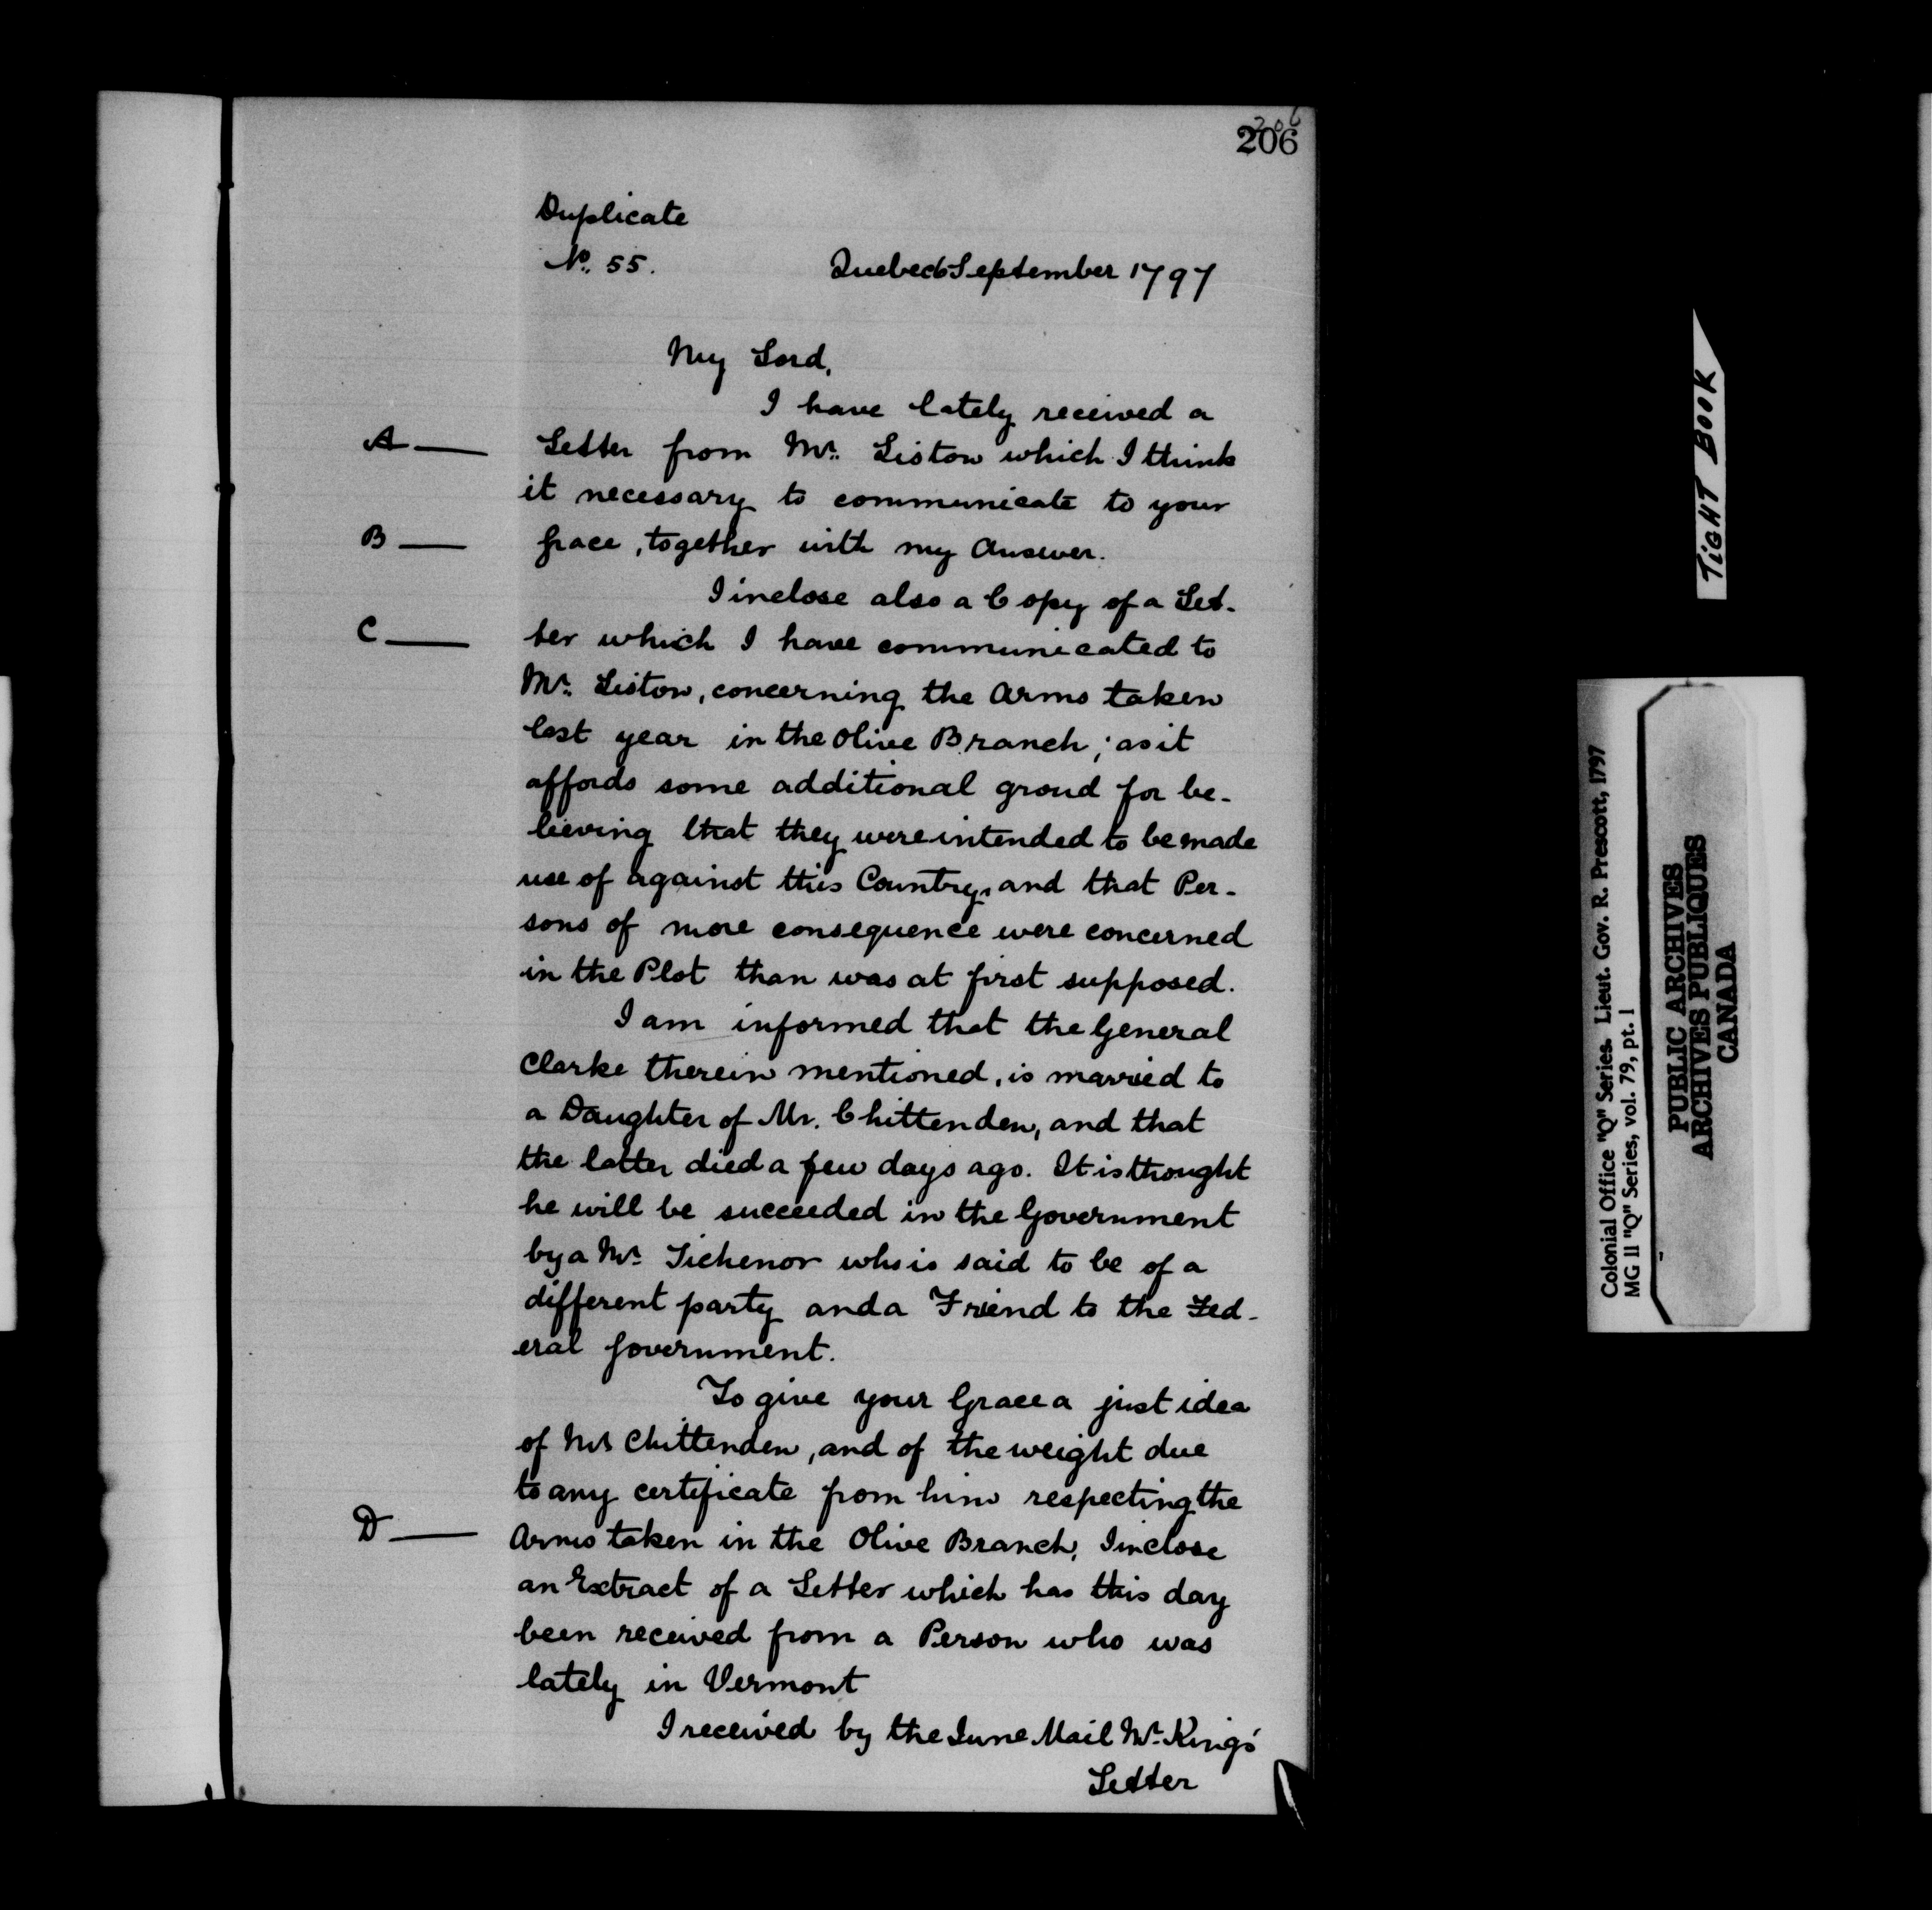 206
206
Duplicate
No. 55.
Quebec 6 September 1797
My Lord,
I have lately received a
A — Letter from Mr. Liston which I think
it necessary to communicate to your
B — Grace, together with my Answer.
I inclose also a Copy of a Let-
C — ter which I have communicated to
Mr. Liston, concerning the Arms taken
last year in the Olive Branch; as it
affords some additional groud for be-
lieving that they were intended to be made
use of against this Country, and that Per-
sons of more consequence were concerned
in the Plot than was at first supposed.
I am informed that the General
Clarke therein mentioned, is married to
a Daughter of Mr. Chittenden, and that
the latter died a few days ago. It is thought
he will be succeeded in the Government
by a Mr. Tichenor who is said to be of a
different party and a Friend to the Fed-
eral Government.
To give your Grace a just idea
of Mr Chittenden, and of the weight due
to any certificate from him respecting the
D — Arms taken in the Olive Branch, I inclose
an Extract of a Letter which has this day
been received from a Person who was
lately in Vermont
I received by the June Mail Mr. King's
Letter
TIGHT BOOK
Colonial Office "Q" Series. Lieut. Gov. R. Prescott, 1797
MG 11 "Q" Series, vol. 79, pt. 1
PUBLIC ARCHIVES
ARCHIVES PUBLIQUES
CANADA